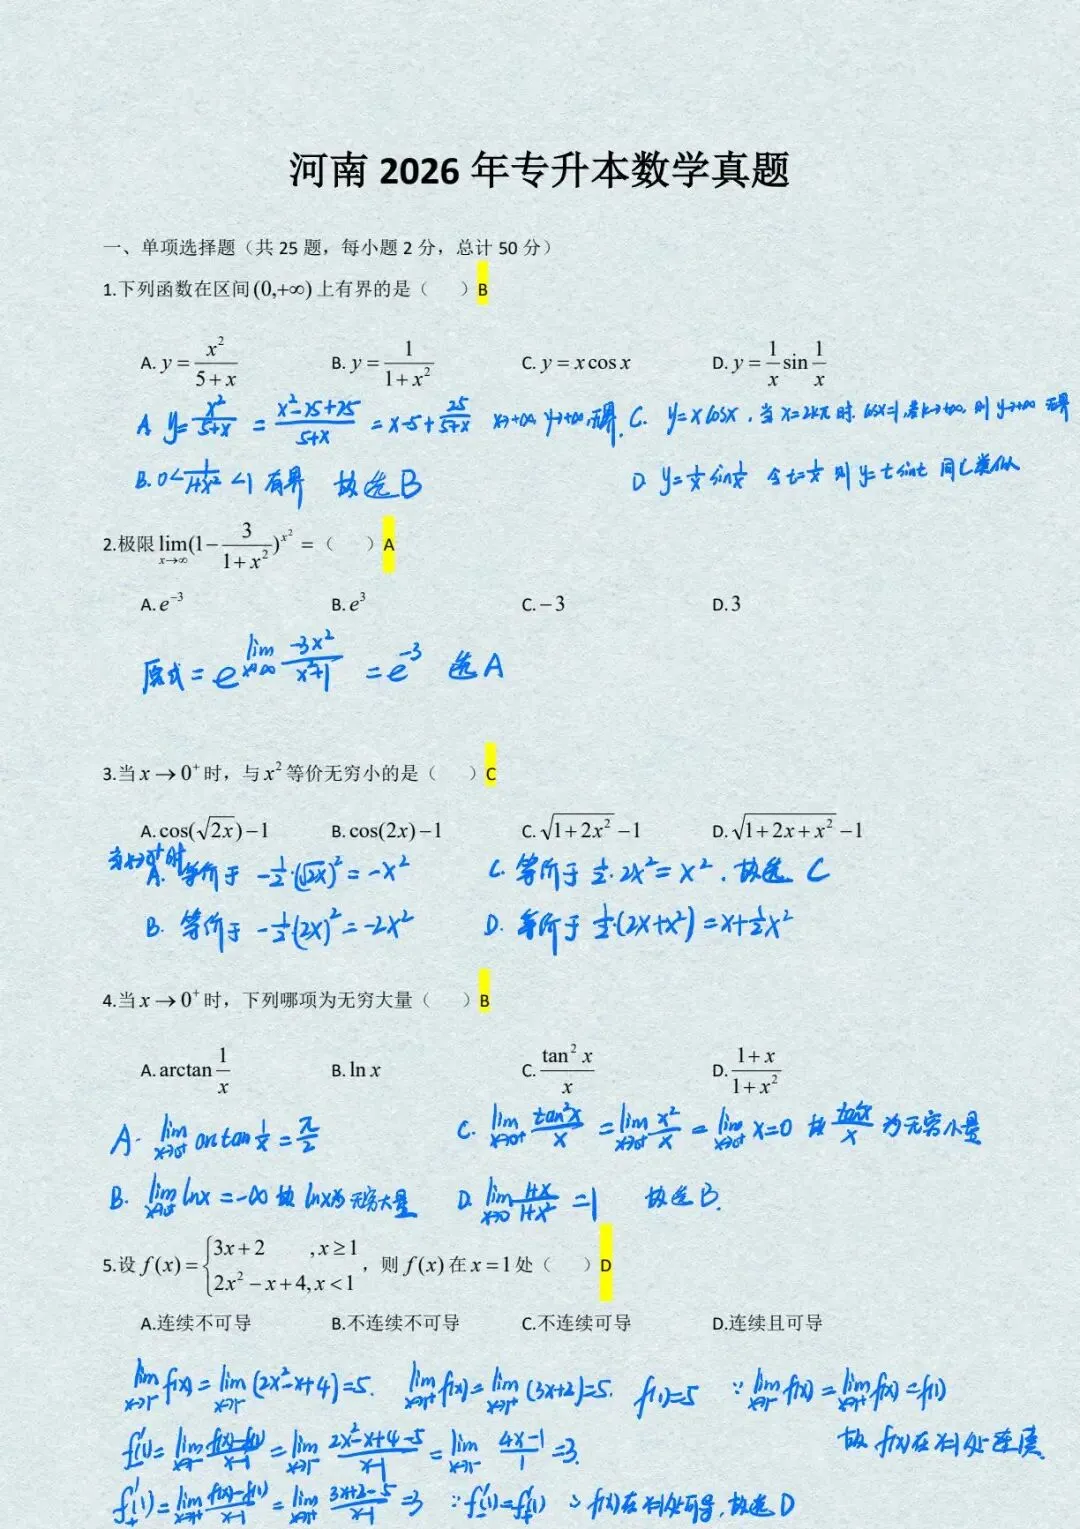 河南 2026 年专升本数学真题
一、单项选择题（共 25 题，每小题 2 分，总计 50 分）
1.下列函数在区间 (0,+∞) 上有界的是（ ）B
A. y = x²/(5+x) B. y = 1/(1+x²) C. y = x cos x D. y = 1/x sin 1/x
A. y = x²/(5+x) = (x²-25+25)/(5+x) = x-5+25/(5+x) x→+∞ y→+∞, 无界. C. y=xcosx, 当 x=2kπ 时. cosx=1, 若k→+∞, 则 y→+∞ 无界
B. 0<1/(1+x²)<1 有界 故选 B D. y=1/x sin1/x 令 t=1/x 则 y=t sint 同C类似
2.极限 lim(x→∞) (1-3/(1+x²))^(x²) =（ ）A
A. e⁻³ B. e³ C. -3 D. 3
原式 = e^(lim(x→∞) -3x²/(x²+1)) = e⁻³ 选 A
3.当 x → 0⁺ 时，与 x² 等价无穷小的是（ ）C
A. cos(√2x)-1 B. cos(2x)-1 C. √(1+2x²) -1 D. √(1+2x+x²) -1
当x→0⁺时
A. 等价于 -1/2·(√2x)² = -x² C. 等价于 1/2·2x² = x². 故选 C
B. 等价于 -1/2·(2x)² = -2x² D. 等价于 1/2·(2x+x²) = x+1/2x²
4.当 x → 0⁺ 时，下列哪项为无穷大量（ ）B
A. arctan 1/x B. ln x C. tan² x/x D. (1+x)/(1+x²)
A. lim(x→0⁺) arctan 1/x = π/2 C. lim(x→0⁺) tan²x/x = lim(x→0⁺) x²/x = lim(x→0⁺) x=0 故 tan²x/x 为无穷小量
B. lim(x→0⁺) lnx = -∞ 故 lnx为 无穷大量 D. lim(x→0) (1+x)/(1+x²) = 1 故选 B.
5.设 f(x) = {3x+2 , x≥1
2x²-x+4, x<1 ，则 f(x) 在 x=1 处（ ）D
A.连续不可导 B.不连续不可导 C.不连续可导 D.连续且可导
lim(x→1⁻) f(x) = lim(x→1⁻) (2x²-x+4)=5. lim(x→1⁺) f(x) = lim(x→1⁺) (3x+2)=5. f(1)=5 ∵ lim(x→1⁻) f(x) = lim(x→1⁺) f(x) = f(1)
故 f(x)在 x=1 处 连续.
f₋'(1) = lim(x→1⁻) (f(x)-f(1))/(x-1) = lim(x→1⁻) (2x²-x+4-5)/(x-1) = lim(x→1⁻) (4x-1)/1 = 3.
f₊'(1) = lim(x→1⁺) (f(x)-f(1))/(x-1) = lim(x→1⁺) (3x+2-5)/(x-1) = 3 ∵ f₋'(1)=f₊'(1) ∴ f(x)在 x=1处可导, 故选 D